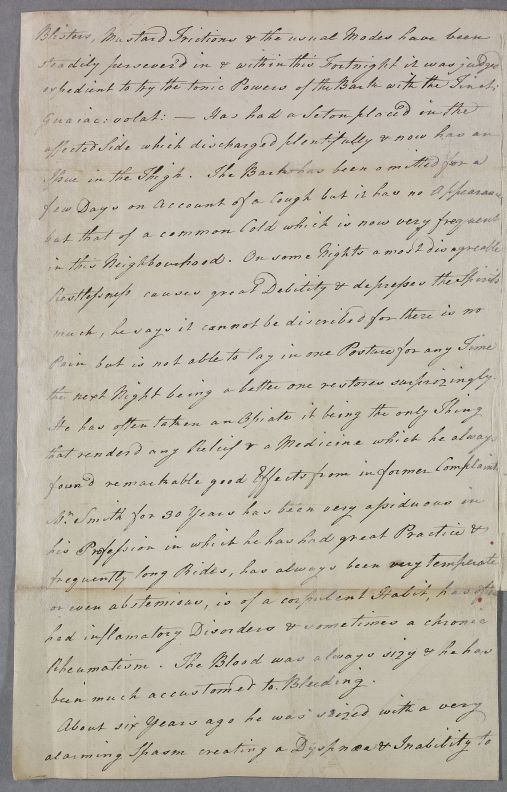 Blisters, Mustard Frictions & the usual Modes have been
steadily persever'd in & within this Fortnight it was judged
expedient to try the tonic Powers of the Bark with the Tinct:
Guaiac: volat: — Has had a Seton placed in the
affected Side which discharged plentifully & now has an
Issue in the Thigh. The Bark has been omitted for a
few Days on Account of a Cough but it has no Appearance
but that of a common Cold which is now very frequent
in this Neighbourhood. On some Nights a most disagreeable
Restlessness causes great Debility & depresses the Spirits
much, he says it cannot be discribed for there is no
Pain but is not able to lay in one Posture for any Time
the next Night being a better one restores surprizingly.
He has often taken an Opiate it being the only Thing
that renderd any Relief & a Medicine which he always
found remarkable good Effects from in former Complaints.
Mr. Smith for 30 Years has been very assiduous in
his Profession in which he has had great Practice &
frequently long Rides, has always been very temperate
or even abstemious, is of a corpulent Habit, has often
had inflamatory Disorders & sometimes a chronic
Rheumatism. The Blood was always sizy & he has
been much accustomed to Bleeding.
About six Years ago he was seized with a very
alarming Spasm creating a Dyspnæa & Inability to